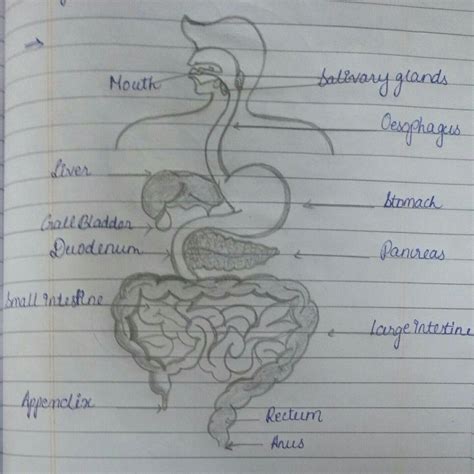 Mouth
Salivary glands
Oesophagus
Liver
Stomach
Gall Bladder
Duodenum
Pancreas
Small intestine
Large intestine
Appendix
Rectum
Anus